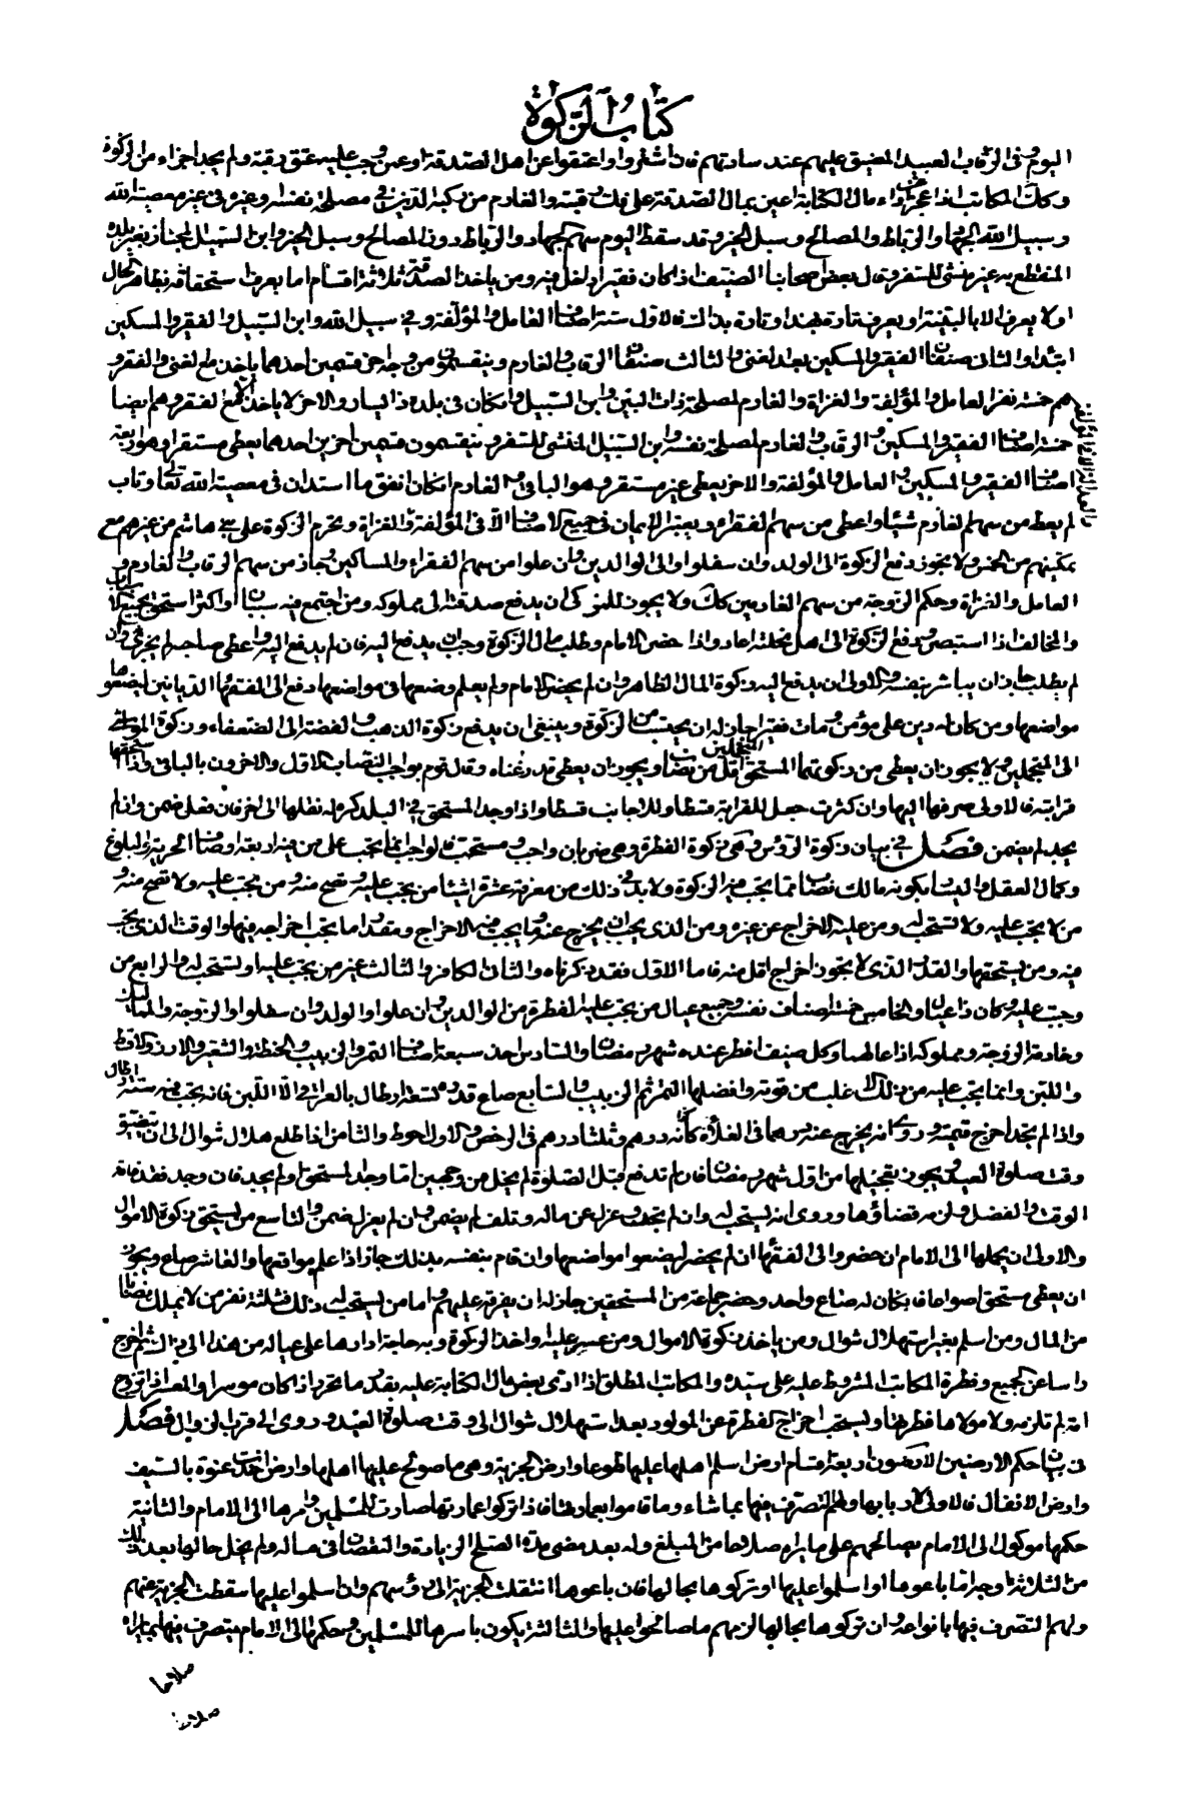 كتاب الزكوة
اليوم وفي الرقاب العبيد المضيق عليهم عند سادتهم فاذا اشتروا واعتقوا عن اهل الصدقة او عمن وجب عليه عتق رقبة ولم يجد اجزاء من الزكوة
وكك المكاتب اذا عجز عن اداء مال الكتابة اعين بمال الصدقة على فك رقبته والغارم من ركبه الدين في مصلحة نفسه او غيره في غير معصية الله
وسبيل الله الجهاد والرباط والمصالح وسبل الخير وقد سقط اليوم سهم الجهاد والرباط دون المصالح وسبل الخير وابن السبيل المجتاز بغير بلده
المنقطع به غير منشئ للسفر وقال بعض اصحابنا الضيف اذا كان فقيرا دخل فيه ومن ياخذ الصدقة ثلاثة اقسام اما يعرف استحقاقه بظاهر الحال
او لا يعرف الا بالبينة او يعرف تارة بهذا وتارة بذاك فالاول ستة اصناف العامل والمؤلفة وفي سبيل الله وابن السبيل والفقير والمسكين
ابتداء والثاني صنفان الفقير والمسكين بعد الغنى والثالث صنفان الرقاب والغارم وينقسمون من وجه اخر قسمين احدهما ياخذ مع الغنى والفقر و
هم خمسة نفر العامل والمؤلفة والغزاة والغارم لمصلحة ذات البين وابن السبيل وان كان في بلده ذا يسار والاخر لا ياخذ الا مع الفقر وهم ايضا
خمسة اصناف الفقير والمسكين والرقاب والغارم لمصلحة نفسه وابن السبيل المنشئ للسفر وينقسمون قسمين اخرين احدهما يعطى مستقرا وهو اربعة
اصناف الفقير والمسكين والعامل والمؤلفة والاخر يعطى غير مستقر وهو الباقي والغارم ان كان انفق ما استدان في معصية الله تعالى وتاب
لم يعط من سهم الغارم شيئا واعطي من سهم الفقراء ويعتبر الايمان في جميع الاصناف الا في المؤلفة والغزاة وتحرم الزكوة على بني هاشم من غيرهم مع
تمكينهم من الخمس ولا يجوز دفع الزكوة الى الولد وان سفلوا والى الوالدين وان علوا من سهم الفقراء والمساكين وجاز من سهم الرقاب والغارم و
العامل والغزاة وحكم الزوجة من سهم الغارمين كك ولا يجوز للمزكي ان يدفع صدقته الى مملوكه ومن اجتمع فيه سببان او اكثر استحق بجميع الاسباب
والمخالف اذا استبصر ودفع الزكوة الى اهل نحلته اعاد واذا حضر الامام وطلب مال الزكوة وجب ان يدفع اليه فان لم يدفع اليه واعطى صاحبه لم يجزئ وان
لم يطلب جاز ان يباشر بنفسه والاولى ان يدفع اليه زكوة المال الظاهر وان لم يحضر الامام ولم يعلم وضعها في مواضعها دفع الى الفقهاء الديانين ليضعوها
مواضعها ومن كان له دين على مؤمن ومات فقيرا جاز له ان يحتسب من الزكوة وينبغي ان يدفع زكوة الذهب والفضة الى الضعفاء وزكوة المواشي
الى المتجملين ولا يجوز ان يعطى من زكوتهما المستحق اقل من نصاب ويجوز ان يعطى قدر غناه وقال قوم بواجب النصاب الاول والاخرون بالباقي واذا استحقها
قرابته فالاولى صرفها اليها وان كثرت جعل للقرابة قسطا وللاجانب قسطا واذا وجد المستحق في البلد كره له نقلها الى اخر فان فعل ضمن وان لم
يجد لم يضمن فصل في بيان زكوة الرؤس وهي زكوة الفطرة وهي ضربان واجب ومستحب فالواجب انما يجب على من فيه اربعة اوصاف الحرية والبلوغ
وكمال العقل واليسار بكونه مالك نصاب مما يجب فيه الزكوة ولا بد في ذلك من معرفة عشرة اشياء من يجب عليه وتصح منه ومن يجب عليه ولا تصح منه و
من لا يجب عليه ولا تستحب له ومن عليه الاخراج عن غيره ومن الذي يجب ان يخرج عنه وما يجب فيه الاخراج ومقدار ما يجب اخراجه فيها والوقت الذي يجب
فيه ومن يستحقها والقدر الذي لا يجوز اخراج اقل منه فاما الاول فقد ذكرناه والثاني الكافر والثالث غير من يجب عليه او تستحب له والرابع من
وجبت عليه وكان ذا عيال والخامس خمسة اصناف نفسه وجميع عيال من يجب عليه الفطرة من الوالدين وان علوا والولد وان سفلوا والزوجة والمماليك
وخادمة الزوجة ومملوكه اذا عالهما وكل ضيف افطر عنده شهر رمضان والسادس احد سبعة اصناف التمر والزبيب والحنطة والشعير والارز والاقط
واللبن وانما يجب عليه من ذلك الاغلب من قوته وافضلها التمر ثم الزبيب والسابع صاع قدره تسعة ارطال بالعراقي الا اللبن فانه يجب فيه ستة ارطال
واذا لم يجد اخرج قيمته وروي انه يخرج عنه درهما في الغلاء كانه درهم وثلثا درهم في الرخص والاول احوط والثامن اذا طلع هلال شوال الى ان يتضيق
وقت صلوة العيد ويجوز تعجيلها من اول شهر رمضان فان لم تدفع قبل الصلوة لم يخل من وجهين اما وجد المستحق او لم يجد فان وجد فقد فاته
الوقت والفضل ولزمه قضاؤها وروي انه يستحب له وان لم يجد وعزل عن ماله وتلف لم يضمن وان لم يعزل ضمن والتاسع من يستحق زكوة الاموال
والاولى ان يحملها الى الامام ان حضر والى الفقهاء ان لم يحضر ليضعوا مواضعها وان قام بنفسه بذلك جاز اذا علم مواقعها والعاشر صاع ويجوز
ان يعطى مستحق اصواعا فان كان له صاع واحد وحضر جماعة من المستحقين جاز له ان يفرقه عليهم واما من يستحب له ذلك فثلثة نفر من لا يملك نصابا
من المال ومن اسلم بغير استهلال شوال ومن ياخذ زكوة الاموال ومن عسر عليه واخذ الزكوة وبه حاجة ادارها على عياله من هذا الى ذاك ثم اخرج
راسا عن الجميع وفطرة المكاتب المشروط عليه على سيده والمكاتب المطلق اذا ادى بعض مال الكتابة عليه بقدر ما تحرر اذا كان موسرا والمعسر اذا تزوج
امة لم تلزمه ولا مولاها فطرتها ويستحب اخراج الفطرة عن المولود بعد استهلال شوال الى وقت صلوة العيد وروي الى قرب الزوال فصل
في بيان حكم الارضين الارضون اربعة اقسام ارض اسلم اهلها عليها طوعا وارض الجزية وهي ما صولح عليها اهلها وارض اخذت عنوة بالسيف
وارض الانفال فالاولى لاربابها ولهم التصرف فيها بما شاءوا وما قاموا بعمارتها فاذا تركوا عمارتها صارت للمسلمين وامرها الى الامام والثانية
حكمها موكول الى الامام يصالحهم على ما يراه صلاحا من المبلغ وله بعد مضي مدة الصلح الزيادة والنقصان في ماله ولم يخل حالها بعد ذلك
من ثلاثة اوجه اما باعوها او اسلموا عليها او تركوها بحالها فان باعوها انتقلت الجزية الى رؤسهم وان اسلموا عليها سقطت الجزية عنهم
ولهم التصرف فيها بانواعه وان تركوها بحالها لزمهم ما صالحوا عليها والثالثة يكون باسرها للمسلمين وحكمها الى الامام يتصرف فيها بما يراه
صلاحا